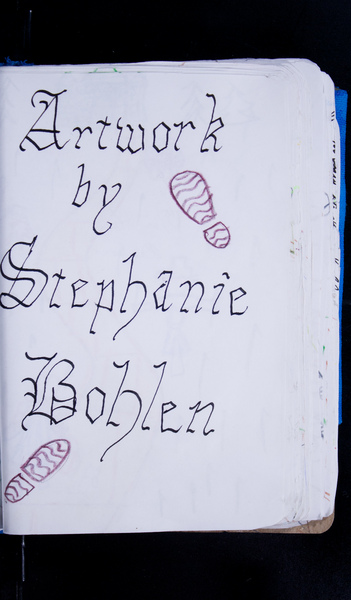 Artwork
by
Stephanie
Bohlen